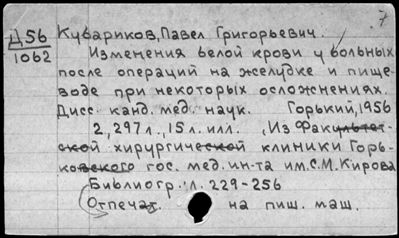 7
Д56 Кубариков, Павел Григорьевич.
1062 Изменения белой крови у больных
после операций на желудке и пище-
воде при некоторых осложнениях.
Дисс. канд. мед. наук. Горький, 1956
2, 297 л., 15 л. илл. (Из Факультет-
ской хирургической клиники Горь-
ковского гос. мед. ин-та им. С.М. Кирова
Библиогр.: л. 229-256
Отпечат. на пиш. маш.